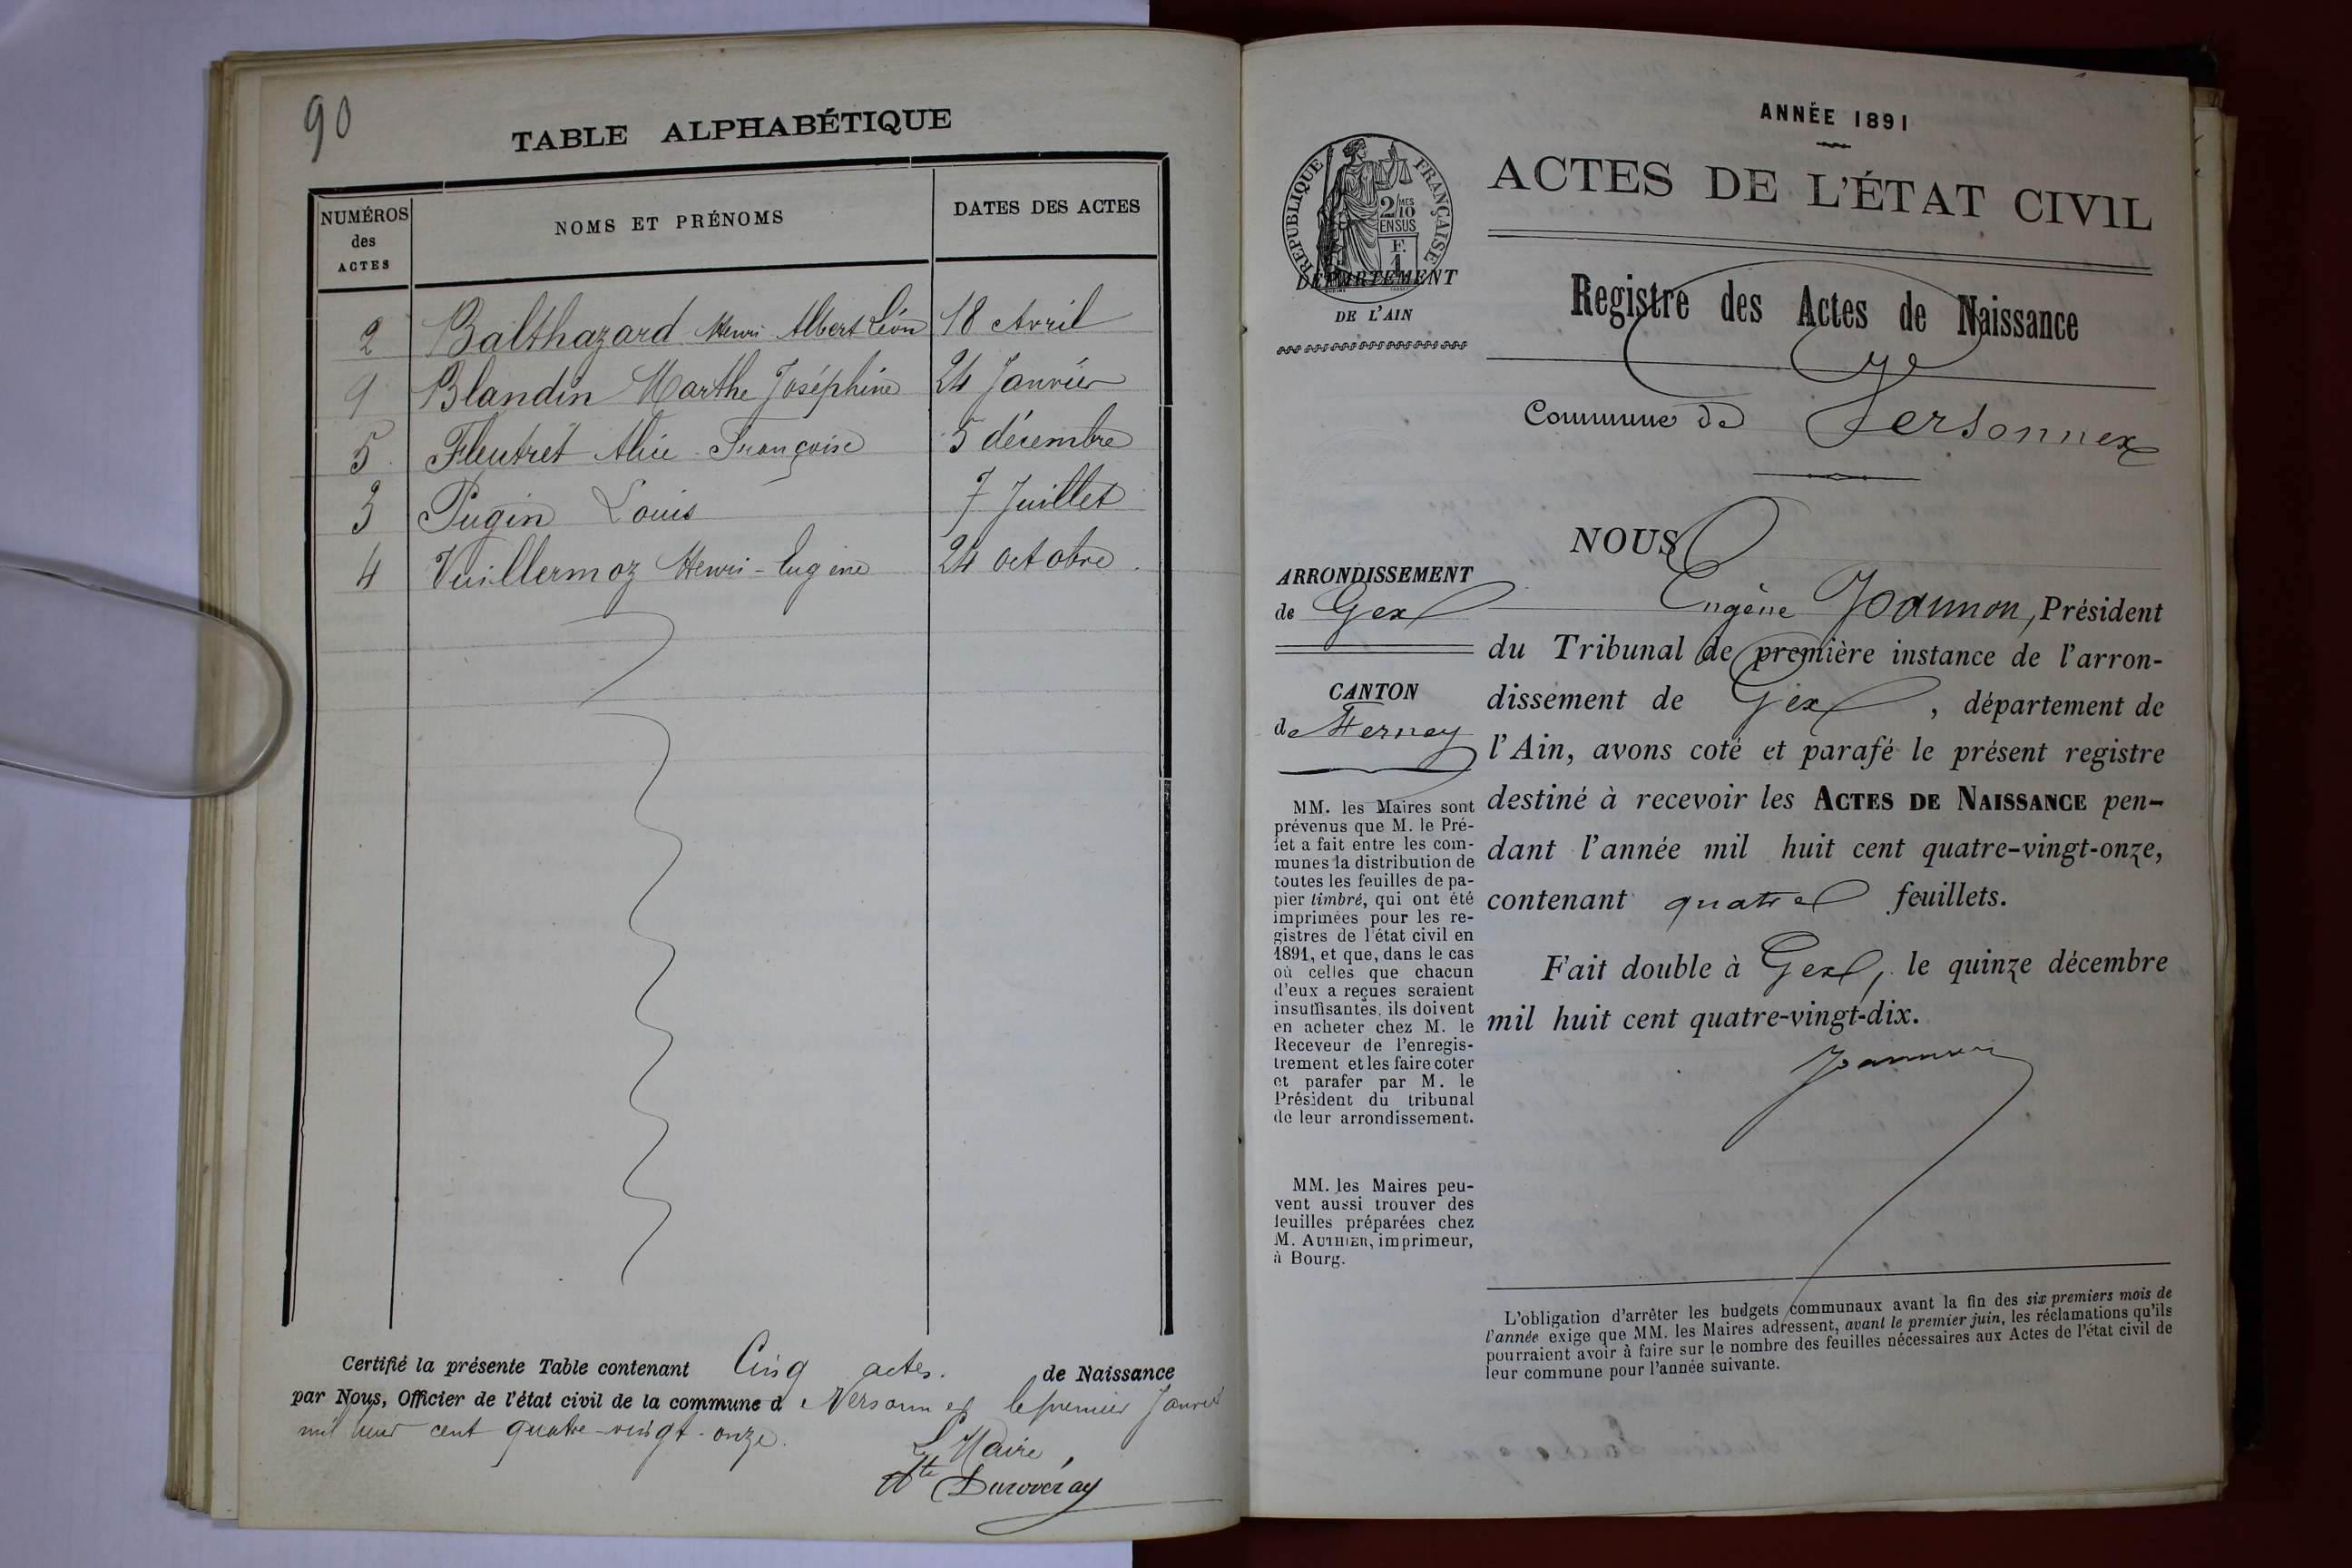 90
TABLE ALPHABÉTIQUE
NUMÉROS des ACTES
NOMS ET PRÉNOMS
DATES DES ACTES
2 Balthazard Henri Albert Léon 18 Avril
1 Blandin Marthe Joséphine 24 Janvier
5 Fleutret Alice Françoise 5 décembre
3 Pugin Louis 7 Juillet
4 Vuillermoz Henri-Eugène 24 octobre
Certifié la présente Table contenant Cinq actes. de Naissance
par Nous, Officier de l'état civil de la commune de Versonnex le premier Janvier
mil huit cent quatre-vingt-onze.
Le Maire,
Duroveray
ANNÉE 1891
ACTES DE L'ÉTAT CIVIL
RÉPUBLIQUE FRANÇAISE
2/10MES
EN SUS
F.
1
DÉPARTEMENT
DE L'AIN
Registre des Actes de Naissance
Commune de Versonnex
ARRONDISSEMENT
de Gex
CANTON
de Ferney
MM. les Maires sont
prévenus que M. le Pré-
fet a fait entre les com-
munes la distribution de
toutes les feuilles de pa-
pier timbré, qui ont été
imprimées pour les re-
gistres de l'état civil en
1891, et que, dans le cas
où celles que chacun
d'eux a reçues seraient
insuffisantes, ils doivent
en acheter chez M. le
Receveur de l'enregis-
trement et les faire coter
et parafer par M. le
Président du tribunal
de leur arrondissement.
MM. les Maires peu-
vent aussi trouver des
feuilles préparées chez
M. AUTHIER, imprimeur,
à Bourg.
NOUS
Eugène Joannon, Président
du Tribunal de première instance de l'arron-
dissement de Gex, département de
l'Ain, avons coté et parafé le présent registre
destiné à recevoir les ACTES DE NAISSANCE pen-
dant l'année mil huit cent quatre-vingt-onze,
contenant quatre feuillets.
Fait double à Gex, le quinze décembre
mil huit cent quatre-vingt-dix.
Joannon
L'obligation d'arrêter les budgets communaux avant la fin des six premiers mois de
l'année exige que MM. les Maires adressent, avant le premier juin, les réclamations qu'ils
pourraient avoir à faire sur le nombre des feuilles nécessaires aux Actes de l'état civil de
leur commune pour l'année suivante.